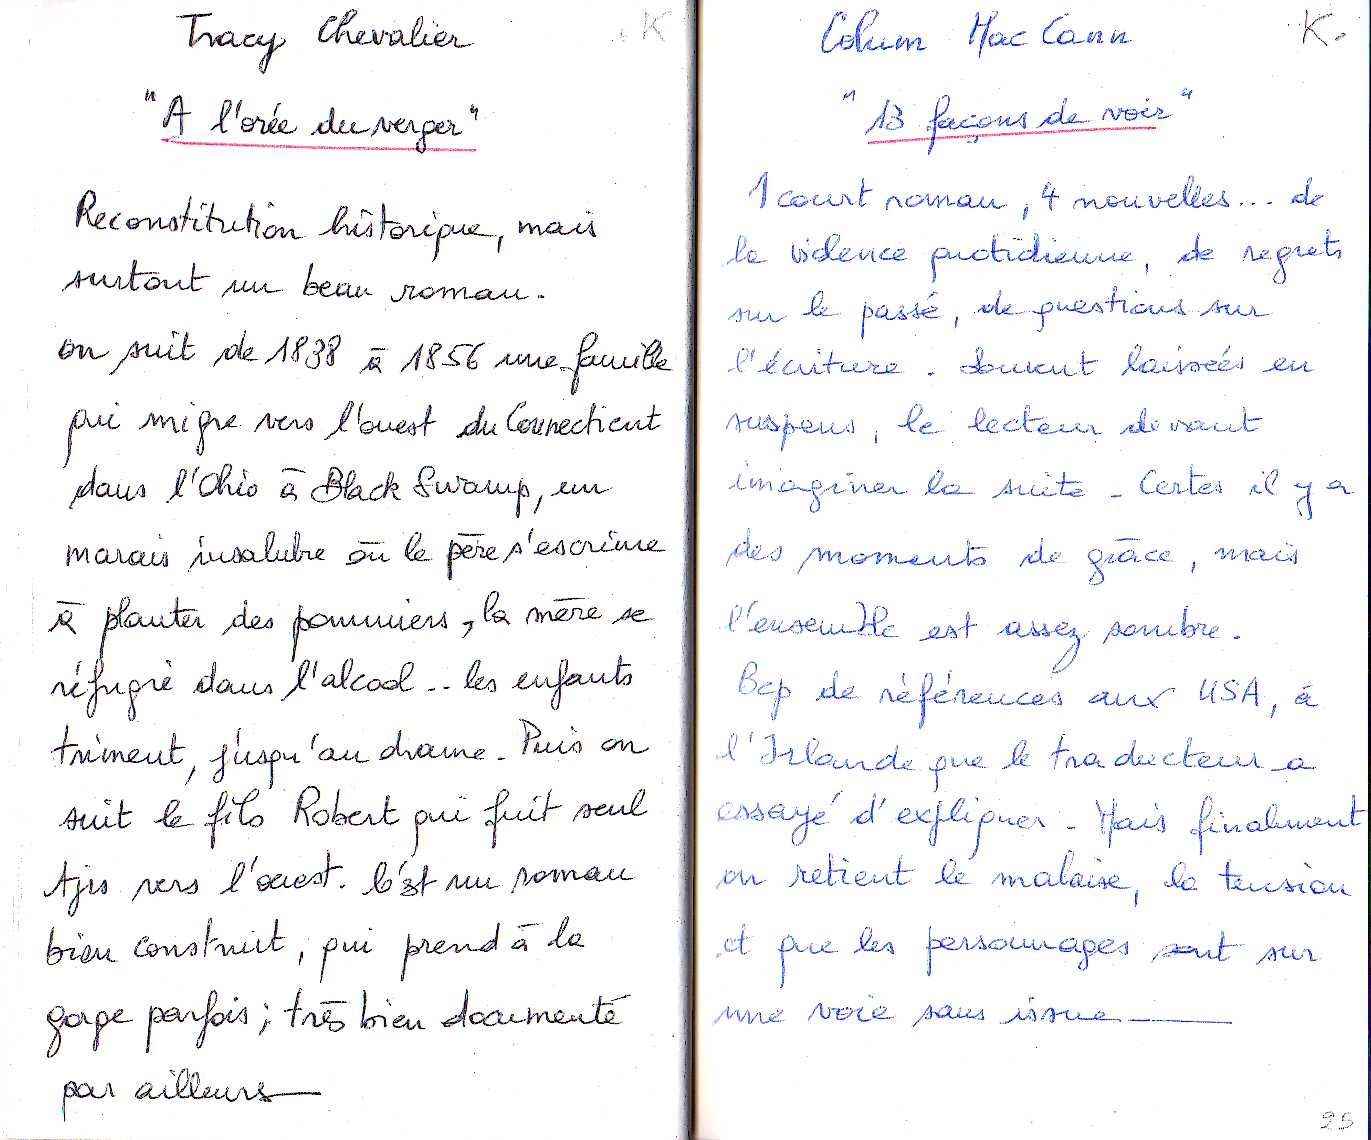 Tracy Chevalier
K
"A l'orée du verger"
Reconstitution historique, mais
surtout un beau roman.
on suit de 1838 à 1856 une famille
qui migre vers l'ouest du Connecticut
dans l'Ohio à Black Swamp, un
marais insalubre où le père s'escrime
à planter des pommiers, la mère se
réfugie dans l'alcool .. les enfants
triment, jusqu'au drame. Puis on
suit le fils Robert qui fuit seul
tjrs vers l'ouest. C'est un roman
bien construit, qui prend à la
gorge parfois ; très bien documenté
par ailleurs
Colum Mac Cann
K.
"13 façons de voir"
1 court roman, 4 nouvelles... de
la violence quotidienne, de regrets
sur le passé, de questions sur
l'écriture. Souvent laissées en
suspens, le lecteur devant
imaginer la suite - Certes il y a
des moments de grâce, mais
l'ensemble est assez sombre.
Bcp de références aux USA, à
l'Irlande que le traducteur a
essayé d'expliquer - Mais finalement
on retient le malaise, la tension
et que les personnages sont sur
une voie sans issue
25